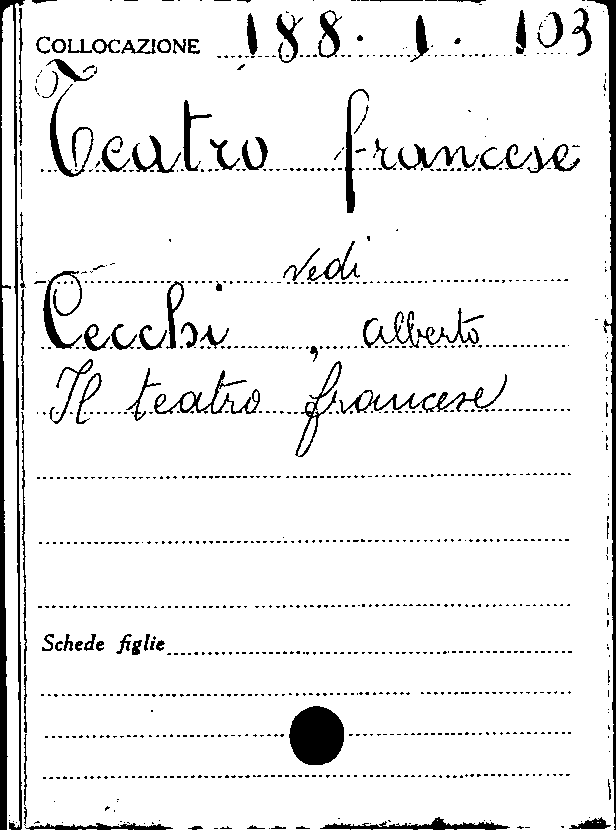 COLLOCAZIONE 188. 1. 103
Teatro francese
vedi
Cecchi, Alberto
Il teatro francese
Schede figlie